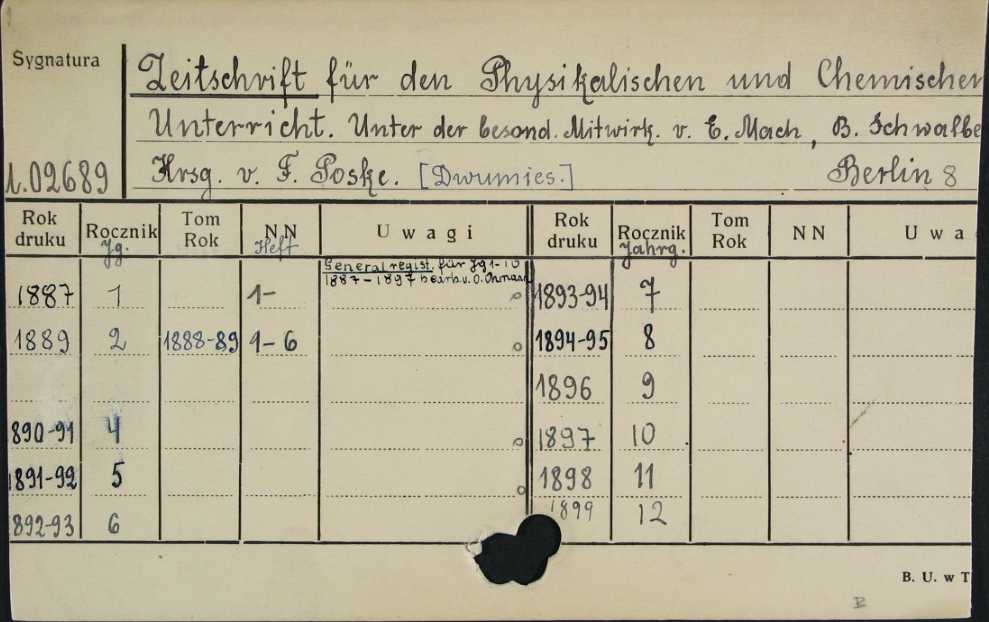 Sygnatura
Zeitschrift für den Physikalischen und Chemischen
Unterricht. Unter der besond. Mitwirk. v. E. Mach, B. Schwalbe
1.02689 Hrsg. v. F. Poske. [Dwumies.] Berlin 8
Rok druku Rocznik Jg. Tom Rok NN Heft Uwagi Rok druku Rocznik Jahrg. Tom Rok NN Uwa
General regist. für Jg 1-10
1887-1897 bearb. v. O.
1887 1 1- 1893-94 7
1889 2 1888-89 1-6 1894-95 8
1896 9
890-91 4 1897 10
1891-92 5 1898 11
892-93 6 1899 12
B. U. w T
B